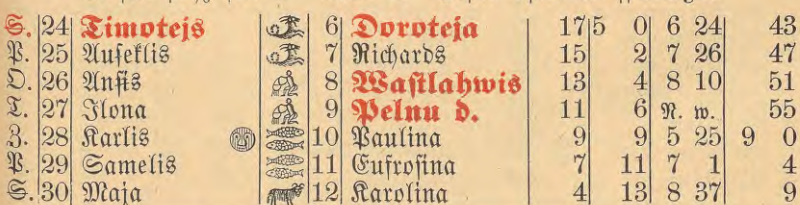 S. 24 Timotejs 6 Doroteja 17 5 0 6 24 43
P. 25 Auseklis 7 Richards 15 2 7 26 47
O. 26 Ansis 8 Wastlahwis 13 4 8 10 51
T. 27 Ilona 9 Pelnu d. 11 6 N. w. 55
Z. 28 Karlis 10 Paulina 9 9 5 25 9 0
P. 29 Samelis 11 Eufrosina 7 11 7 1 4
S. 30 Maja 12 Karolina 4 13 8 37 9